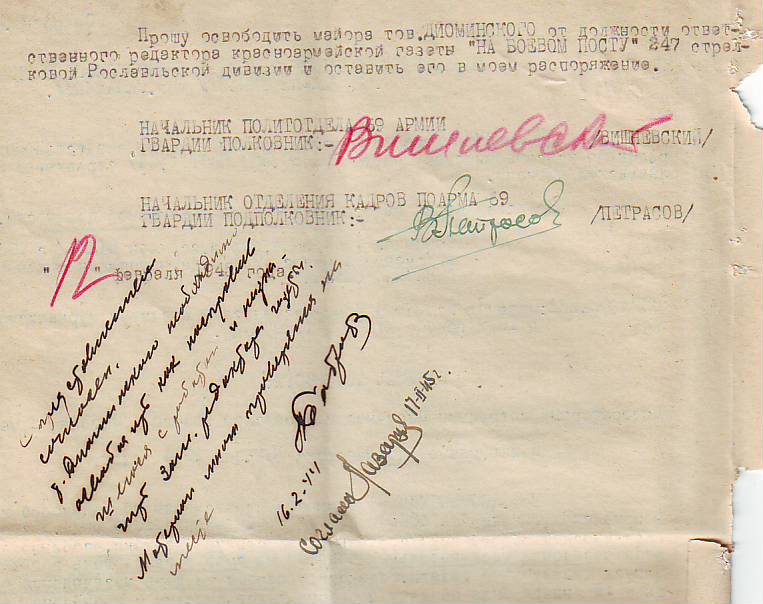 Прошу освободить майора тов. ДИОМИНСКОГО от должности ответ-
ственного редактора красноармейской газеты "НА БОЕВОМ ПОСТУ" 247 стрел-
ковой Рославльской дивизии и оставить его в моем распоряжение.
НАЧАЛЬНИК ПОЛИТОТДЕЛА 69 АРМИИ
ГВАРДИИ ПОЛКОВНИК:- Вишневский /ВИШНЕВСКИЙ/
НАЧАЛЬНИК ОТДЕЛЕНИЯ КАДРОВ ПОАРМА 69.
ГВАРДИИ ПОДПОЛКОВНИК:- ВПетрасов /ПЕТРАСОВ/
"12" февраля 194 года.
С представлением
согласен.
т. Диоминского необходимо
как
с работой и
зам. редактора газеты.
Материал мною проверялся на
месте
16.2.44
Согласен 17-II-45г.